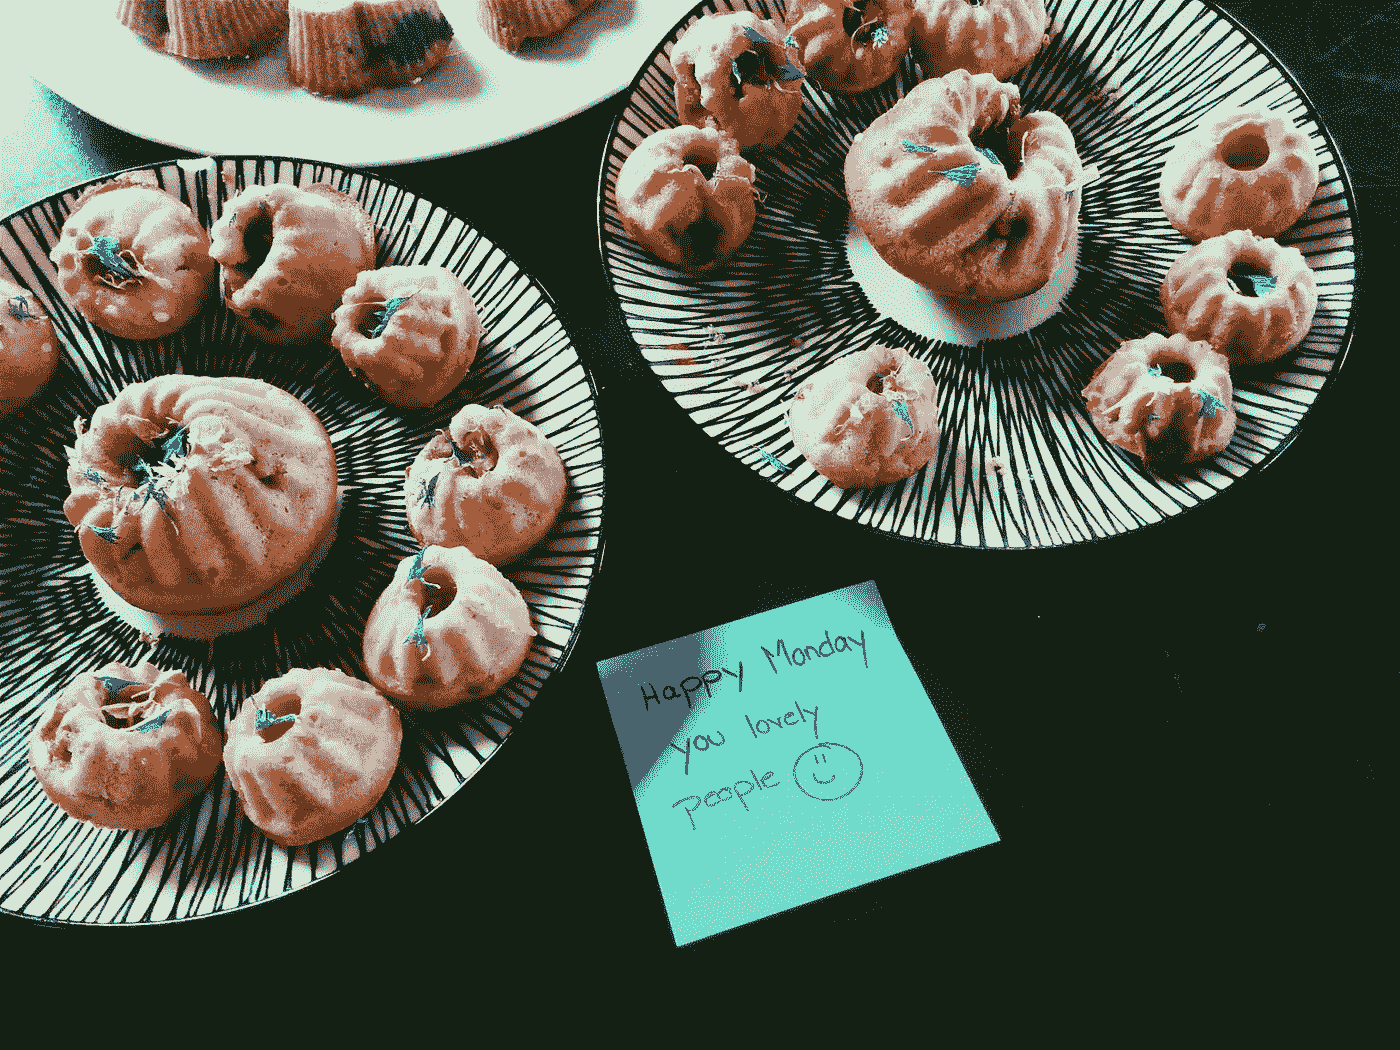 Happy Monday
you lovely
people